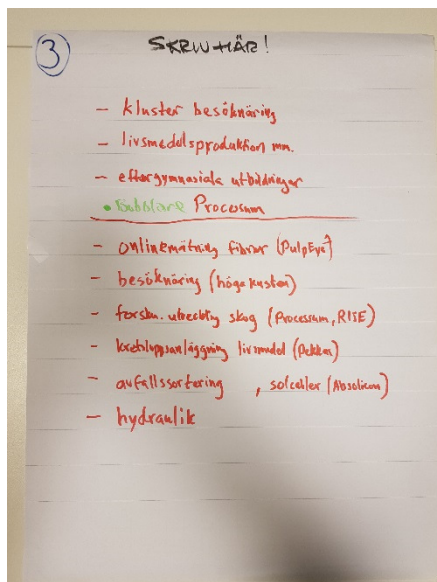 3
SKRIV HÄR!
- kluster besöknäring
- livsmedelsproduktion mm.
- eftergymnasiala utbildningar
• Bubblare Processum
- onlinemätning fibrer (PulpEye)
- besöknäring (höga kusten)
- forskn. utveckling skog (Processum, RISE)
- kretsloppsanläggning livsmedel
- avfallssortering, solceller (Absolicon)
- hydraulik